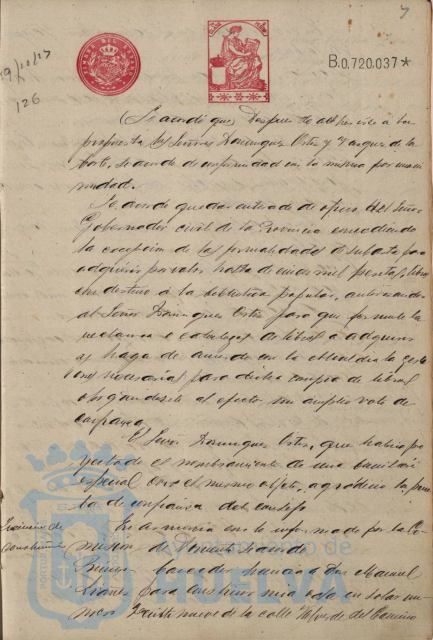 7
B.0.720.037*
19/10/17
126
Se acordó que después de adherirse a la
propuesta los Señores Domínguez Ortiz y Vázquez de la
Corte, se acordó de conformidad con la misma por unani
midad.
Se acordó quedar enterado de oficio del Señor
Gobernador civil de la Provincia concediendo
la excepción de las formalidades de subasta para
adquirir por valor hasta de mil pesetas, libros
con destino á la biblioteca popular, autorizando
al Señor Domínguez Ortiz para que formule la
relación o catálogo de libros a adquirir
y haga de acuerdo con la Alcaldía la gestio
nes necesarias para dicha compra de libros
otorgándosele al efecto un amplio voto de
confianza
El Señor Domínguez Ortiz, que había pro
yectado el nombramiento de una comisión
especial con el mismo objeto, agradeció la prue
ba de confianza del concejo
Licencias de
Construcción
En armonía con lo informado por la Co
misión de
conceder licencia a Don Manuel
para construir una casa en solar nu
mero nueve de la calle Valverde del Camino
Ayuntamiento de
HUELVA